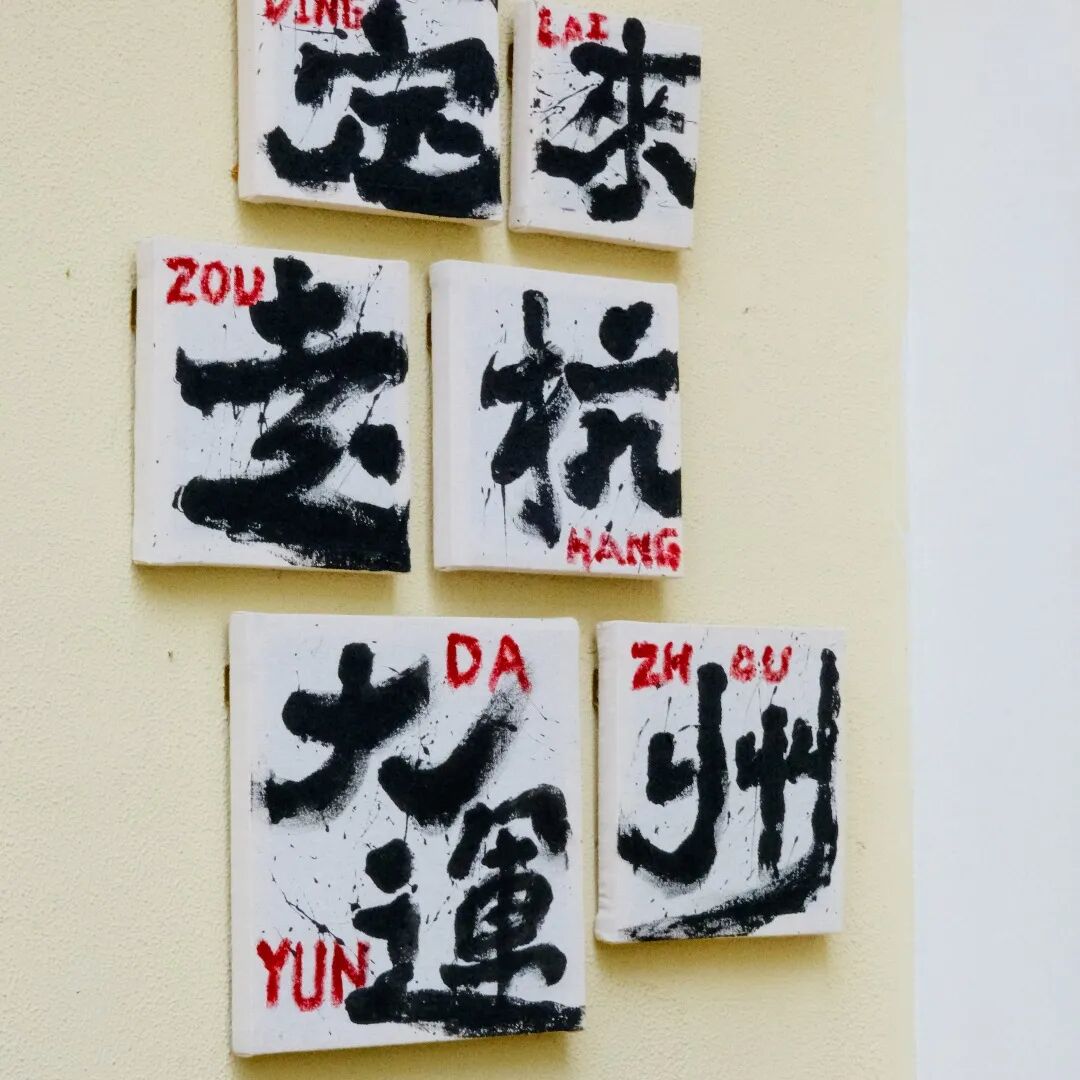 DING
定
LAI
來
ZOU
走
杭
HANG
DA
大
運
YUN
ZHOU
州